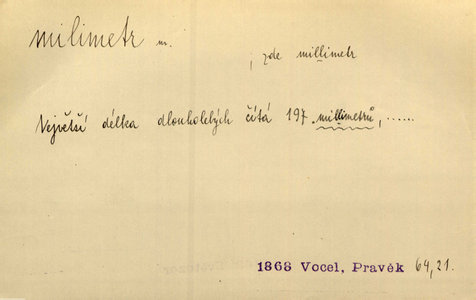 milimetr m.
; zde millimetr
Největší délka dlouholebých čítá 197 millimetrů, ......
1868 Vocel, Pravěk 64,21.